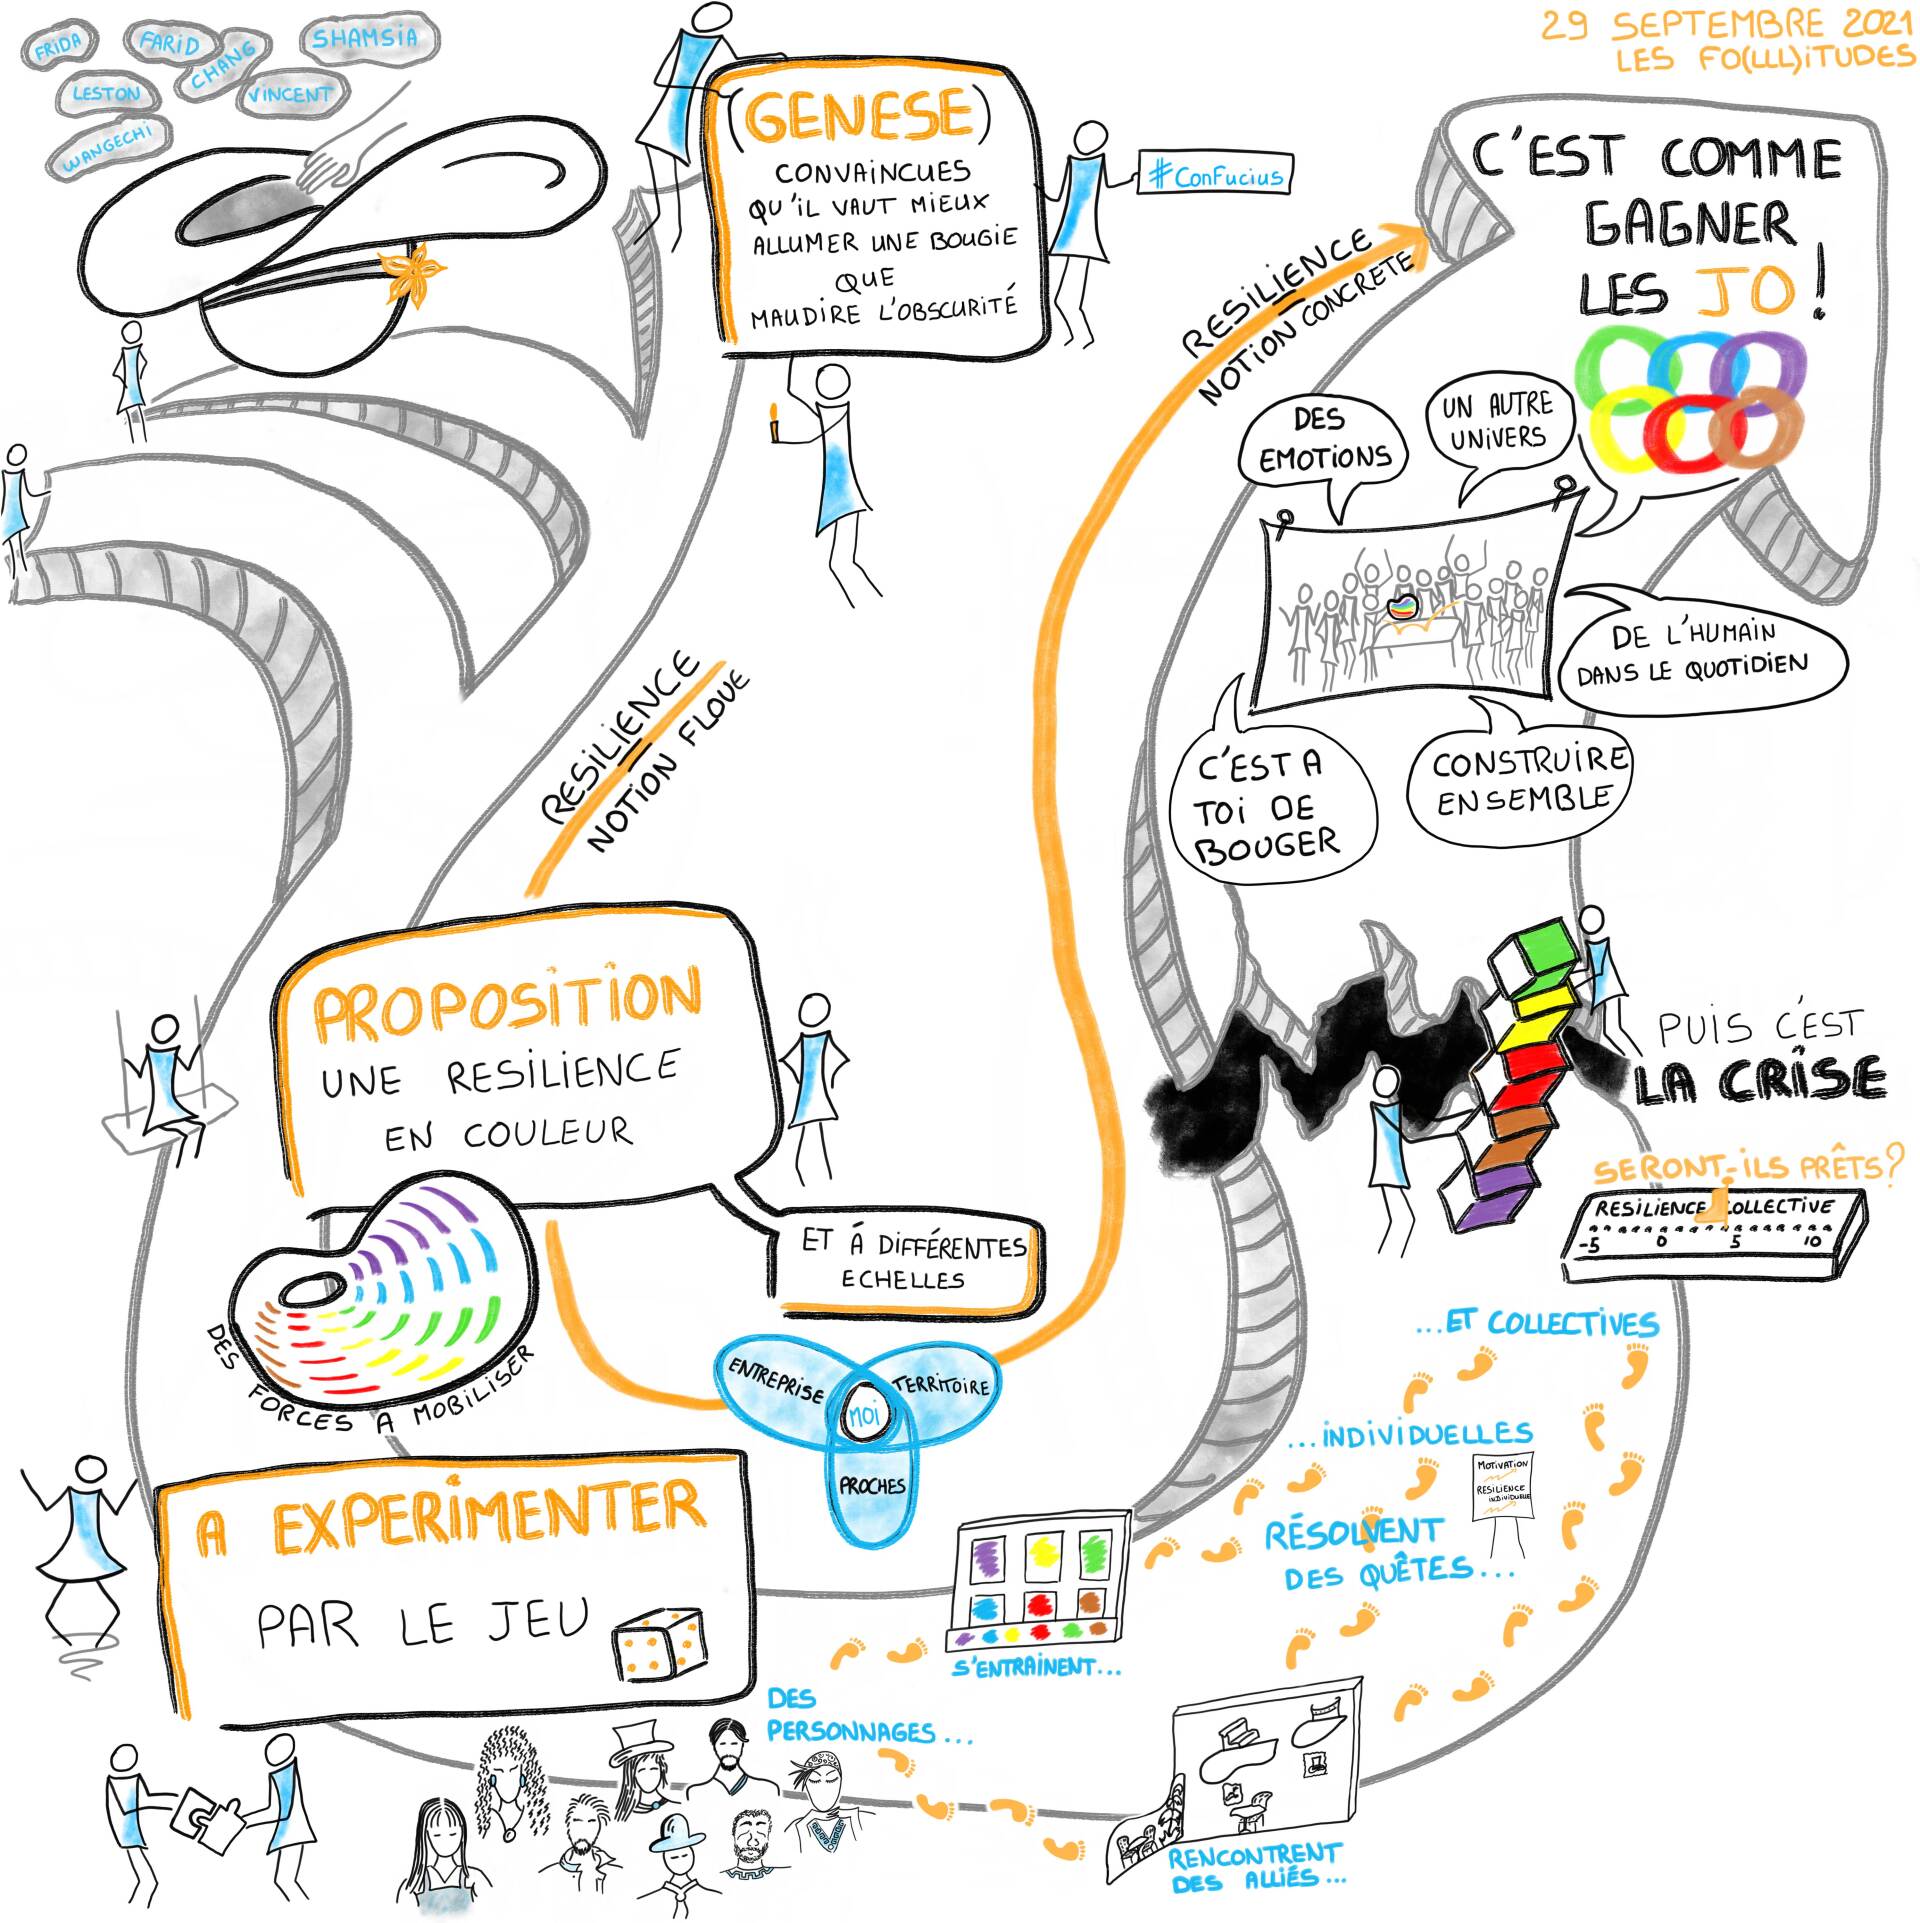 29 SEPTEMBRE 2021
LES FO(LLL)ITUDES
FRIDA
FARID
CHANG
SHAMSIA
LESTON
VINCENT
WANGECHI
(GENESE)
CONVAINCUES
QU'IL VAUT MIEUX
ALLUMER UNE BOUGIE
QUE
MAUDIRE L'OBSCURITÉ
#ConFucius
C'EST COMME
GAGNER
LES JO !
RESILIENCE
NOTION CONCRETE
DES
EMOTIONS
UN AUTRE
UNIVERS
DE L'HUMAIN
DANS LE QUOTIDIEN
C'EST A
TOI DE
BOUGER
CONSTRUIRE
ENSEMBLE
RESILIENCE
NOTION FLOUE
PROPOSITION
UNE RESILIENCE
EN COULEUR
ET À DIFFÉRENTES
ECHELLES
DES FORCES A MOBILISER
ENTREPRISE
TERRITOIRE
MOI
PROCHES
PUIS C'EST
LA CRISE
SERONT-ILS PRÊTS?
RESILIENCE COLLECTIVE
-5 0 5 10
...ET COLLECTIVES
...INDIVIDUELLES
MOTIVATION
RESILIENCE
INDIVIDUELLE
RÉSOLVENT
DES QUÊTES...
A EXPERIMENTER
PAR LE JEU
S'ENTRAINENT...
DES
PERSONNAGES...
RENCONTRENT
DES ALLIÉS...